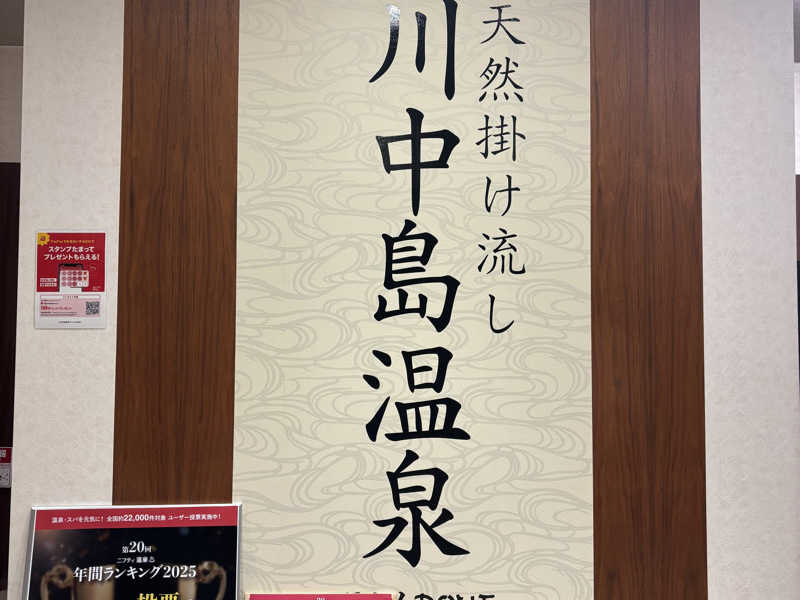 天然掛け流し
川中島温泉
スタンプたまって
プレゼントもらえる!
温泉・スパを元気に! 全国約22,000件対象 ユーザー投票実施中!
第20回
ニフティ温泉
年間ランキング2025